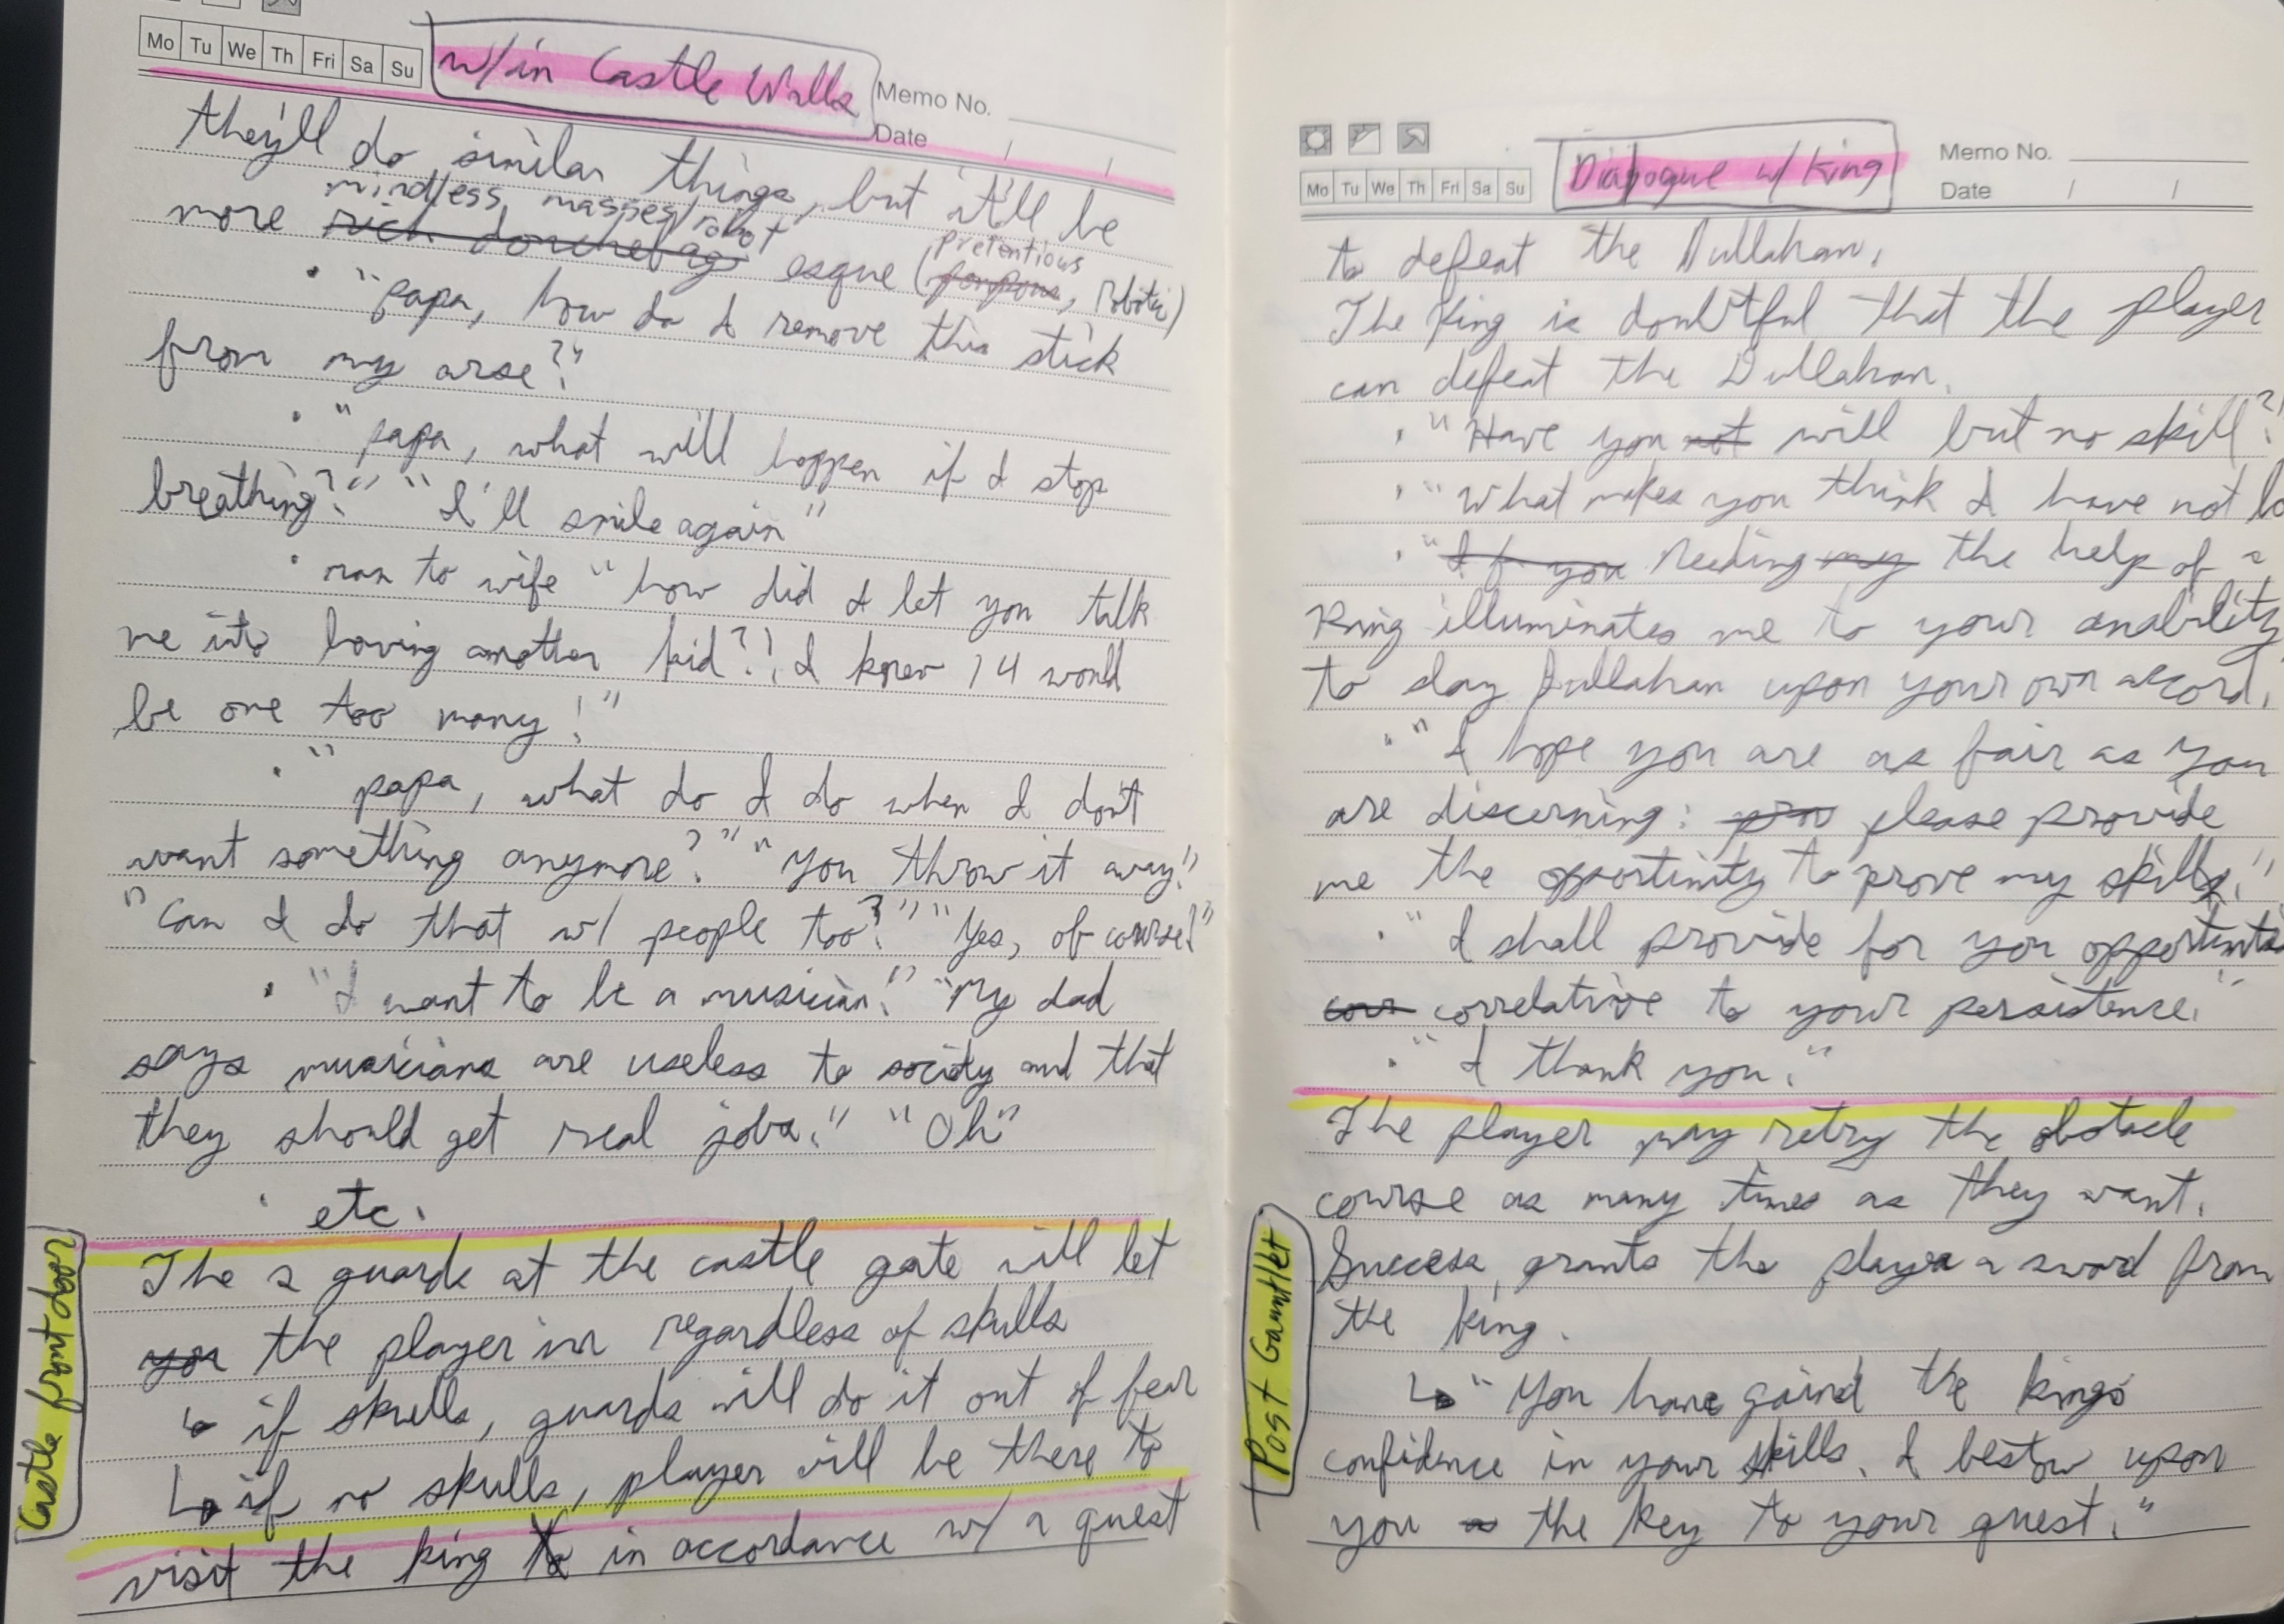 Mo Tu We Th Fri Sa Su
w/in Castle Walls
Memo No.
Date / /
they'll do similar things, but it'll be
mindless masses/robot
more rich douchebag esque (pompous, robotic)
pretentious
• "papa, how do I remove this stick
from my arse?"
• "papa, what will happen if I stop
breathing?" "I'll smile again"
• man to wife "how did I let you talk
me into having another kid?! I knew 14 would
be one too many!"
• "papa, what do I do when I don't
want something anymore?" "You throw it away!"
"Can I do that w/ people too?" "Yes, of course!"
• "I want to be a musician." "My dad
says musicians are useless to society and that
they should get real jobs." "Oh"
• etc.
Castle front door
The 2 guards at the castle gate will let
you the player in regardless of skulls
↳ if skulls, guards will do it out of fear
↳ if no skulls, player will be there to
visit the king to in accordance w/ a quest
Mo Tu We Th Fri Sa Su
Dialogue w/ King
Memo No.
Date / /
to defeat the Dullahan.
The King is doubtful that the player
can defeat the Dullahan.
• "Have you not will but no skill?"
• "What makes you think I have not
• "If you Needing my the help of a
King illuminates me to your anability
to slay Dullahan upon your own accord.
• "I hope you are as fair as you
are discerning: you please provide
me the opportinity to prove my skills."
• "I shall provide for you
corr correlative to your persistence."
• "I thank you."
The player may retry the obstacle
course as many times as they want.
Post Gauntlet
Success, grants the player a sword from
the king.
↳ "You have gaind the kings
confidence in your skills. I bestow upon
you the key to your quest."